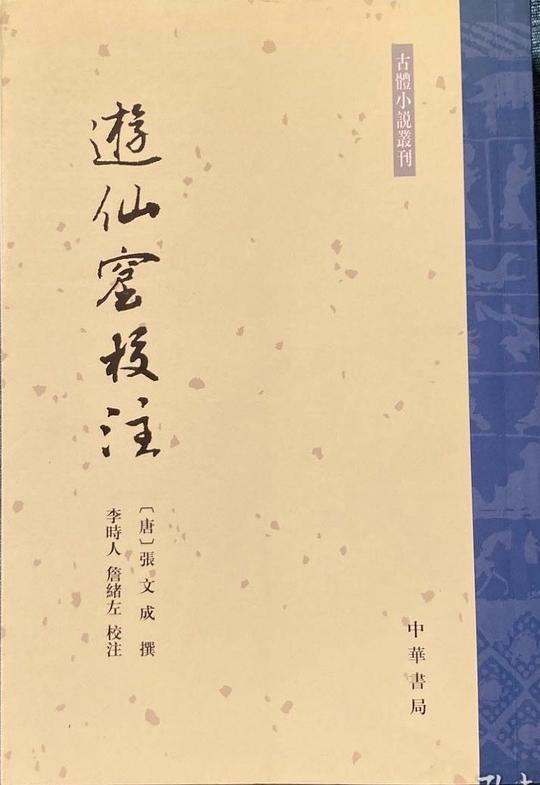 古體小説叢刊
遊仙窟校注
〔唐〕張文成 撰
李時人 詹緒左 校注
中華書局